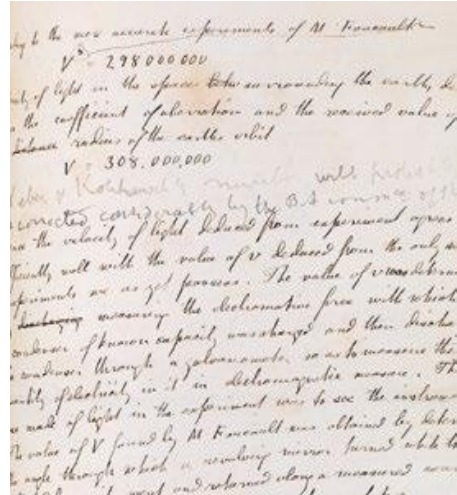 to the more accurate experiments of M Foucault
V = 298000000
of light in the space surrounding the earth
the coefficient of aberration and the received value of
radius of the earths orbit
V = 308.000,000
will
corrected considerably by the B.A
the velocity of light deduced from experiment agrees
well with the value of v deduced from the only
experiments we as yet possess. The value of v was
measuring the electromotive force with which
condenser of known capacity was charged and then
condenser through a galvanometer so as to measure the
of electricity in it in electromagnetic measure. The
made of light in the experiment was to see the
value of V found by M Foucault was obtained by
angle through which a revolving mirror turned while
went and returned along a measured